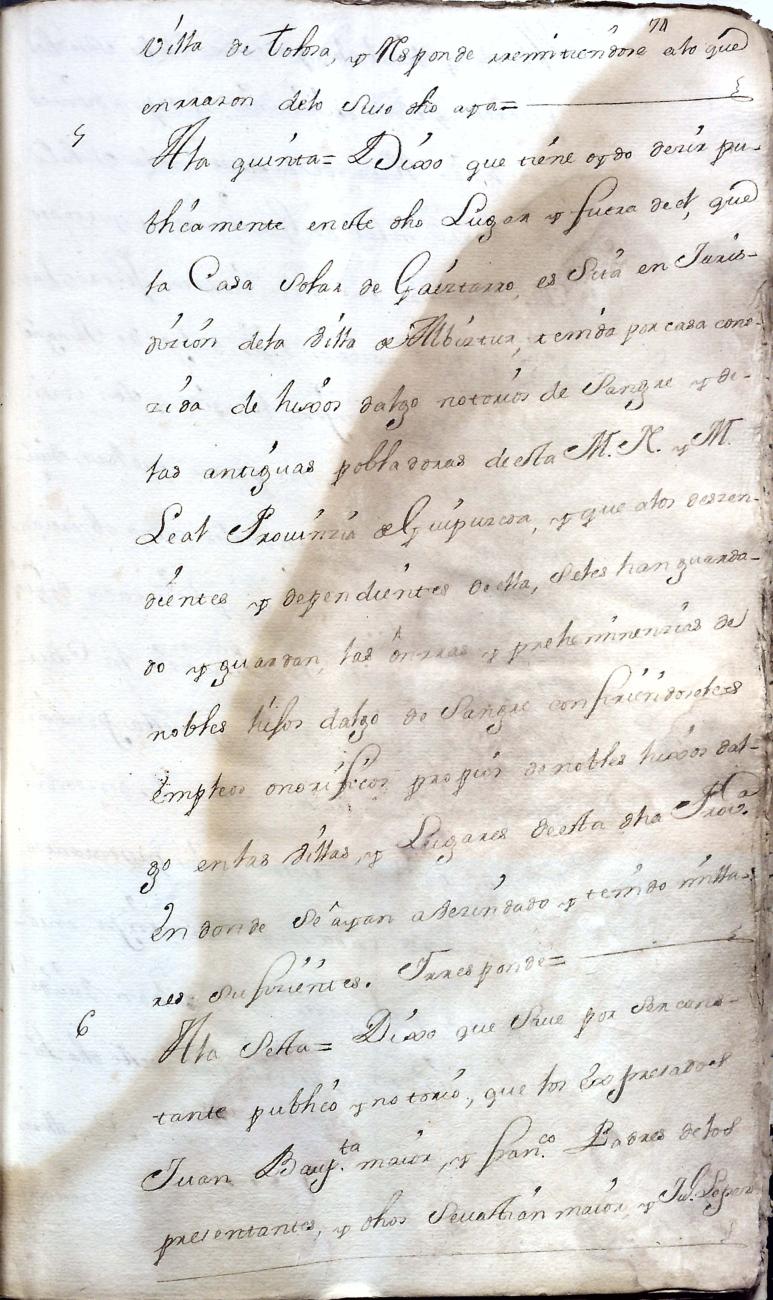 71
Villa de Tolosa, y Responde rremitiendose alo que
enrrazon delo Suso dho aya=
5 Ala quinta= Dixo que tiene oydo dezir pu-
blicamente eneste dho Lugar y fuera de el, que
la Casa Solar de Gaiztarro, es Sita en Juris-
dizion dela Villa de Albiztur, tenida por casa cono-
zida de hixos dalgo notorios de Sangre y de
las antiguas pobladoras de esta M. N. y M.
Leal Provinzia de Guipuzcoa, y que alos deszen-
dientes y dependientes de ella, seles han guarda-
do y guardan, las onrras y preheminenzias de
nobles hijos dalgo de Sangre confiriendoseles
Empleos onorificos propios de nobles hixos dal-
go enlas Villas, y Lugares de esta dha Prov.ª
En donde Se ayan abezindado y tenido milla-
res Sufizientes. Yrresponde=
6 Ala Sesta= Dixo que Save por Ser cons-
tante publico y notorio, que los Expresados
Juan Bap.ta maior, y fran.co Padres delos
presentantes, y dhos Sevastian maior, y Ju.